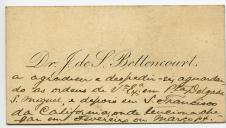 Dr. J. de S. Bettencourt.
a agradecer e despedir-se, aguardan
do as ordens de V. Ex.ª em P.ta Delgada
S. Miguel, e depois em S. Francisco
da California onde tenciona che
gar em Fevereiro ou Março p.f.